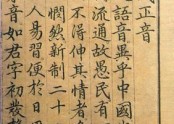 正音
語音異乎中國
流通故愚民有
不得伸其情者
憫然新制二十
人易習便於日
音如君字初發